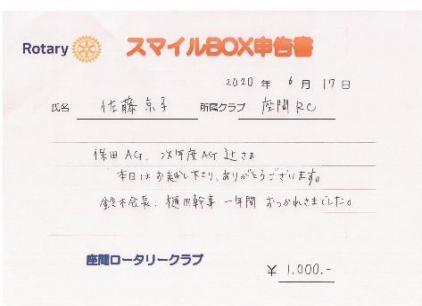 Rotary スマイルBOX申告書
2020 年 6 月 17 日
氏名 佐藤 京子 所属クラブ 座間 RC
保田 AG、次年度 AG 辻さま
本日はお越し下さり、ありがとうございます。
鈴木会長、樋田幹事 一年間 おつかれさまでした。
座間ロータリークラブ
¥ 1.000.-